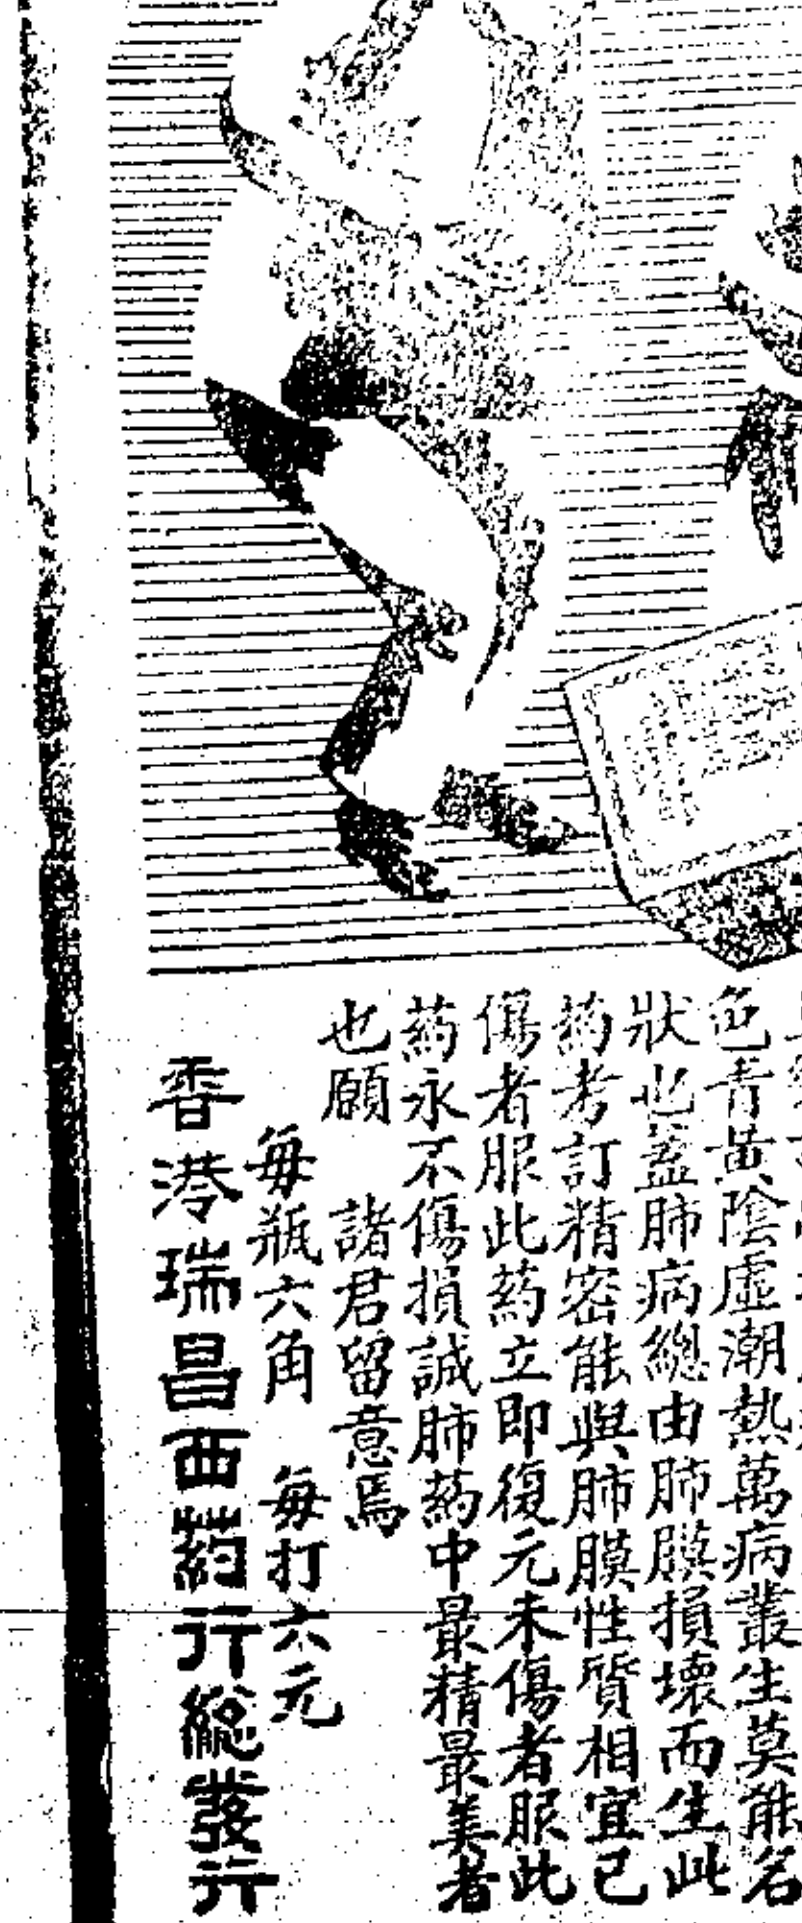 色青黃陰虛潮熱萬病叢生莫能名
狀也蓋肺病總由肺膜損壞而生此
葯考訂精密能與肺膜性質相宜已
傷者服此葯立即復元未傷者服此
葯永不傷損誠肺葯中最精最美者
也願 諸君留意焉
每瓶六角 每打六元
香港瑞昌西葯行總發行